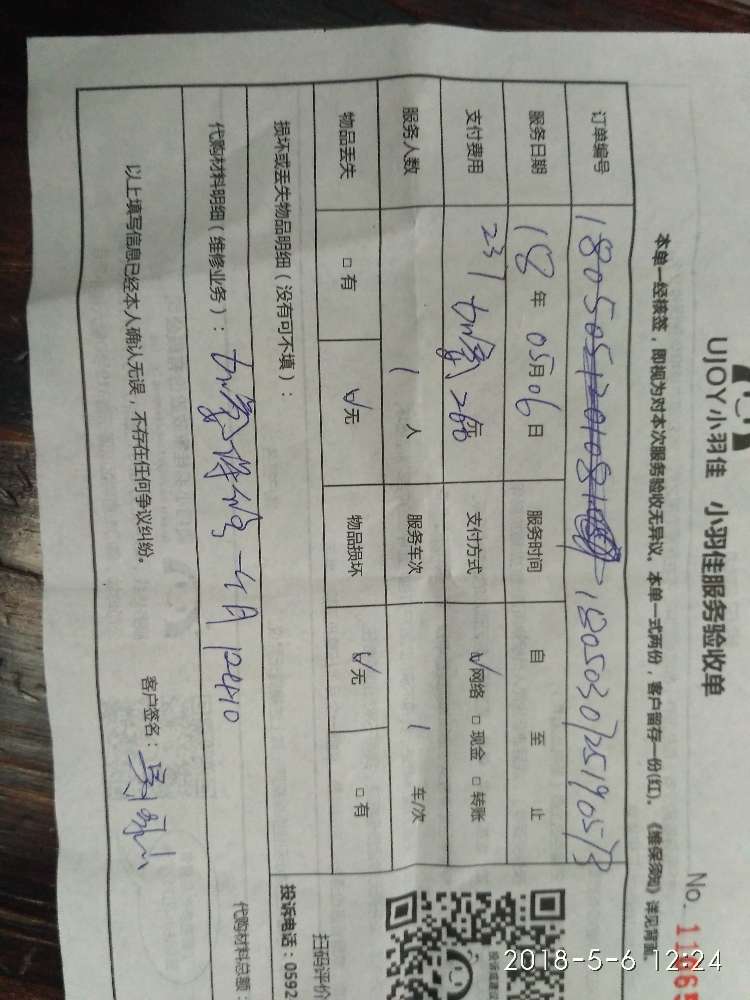 UJOY小羽佳 小羽佳服务验收单
No. 116
本单一经核签，即视为对本次服务验收无异议。本单一式两份，客户留存一份(红)。《维保须知》详见背面
订单编号 180503072519057
服务日期 18年05月06日 服务时间 自 至 止
支付费用 231 加 支付方式 ☑网络 □现金 □转账
服务人数 1人 服务车次 1 车/次
物品丢失 □有 ☑无 物品损坏 ☑无 □有
损坏或丢失物品明细（没有可不填）：
代购材料明细（维修业务）：加
代购材料总额：
以上填写信息已经本人确认无误，不存在任何争议纠纷。 客户签名：
扫码评价
投诉电话：0592
2018-5-6 12:24